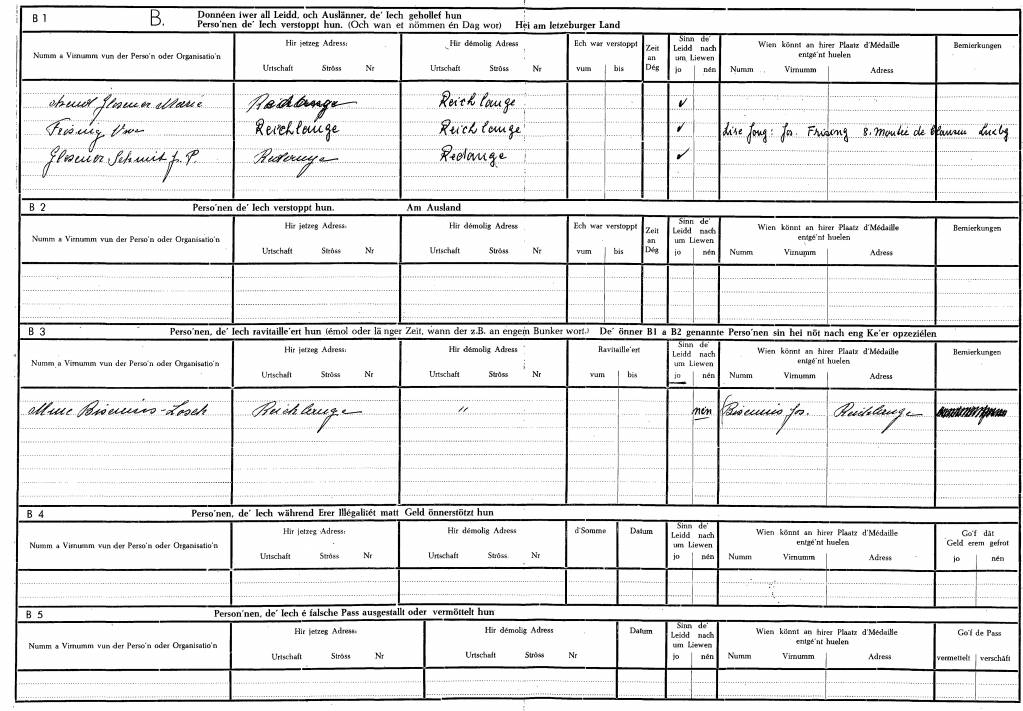 B 1 B. Donnéen iwer all Leidd, och Auslänner, de' Iech gehollef hun
Perso'nen de' Iech verstoppt hun. (Och wan et nömmen én Dag wor) Hei am letzeburger Land
Numm a Virnumm vun der Perso'n oder Organisatio'n Hir jetzeg Adress: Hir démolig Adress Ech war verstoppt Zeit an Dég Sinn de' Leidd nach um Liewen Wien könnt an hirer Plaatz d'Médaille entgé'nt huelen Bemierkungen
Urtschaft Ströss Nr Urtschaft Ströss Nr vum bis jo nén Numm Virnumm Adress
Glesener Marie Reichlange ✓
Reichlange Reichlange ✓ Jos. Frising 8. Montée de Clausen
Glesener Schmit J. P. Redange Redange ✓
B 2 Perso'nen de' Iech verstoppt hun. Am Ausland
Numm a Virnumm vun der Perso'n oder Organisatio'n Hir jetzeg Adress: Hir démolig Adress Ech war verstoppt Zeit an Dég Sinn de' Leidd nach um Liewen Wien könnt an hirer Plaatz d'Médaille entgé'nt huelen Bemierkungen
Urtschaft Ströss Nr Urtschaft Ströss Nr vum bis jo nén Numm Virnumm Adress
B 3 Perso'nen, de' Iech ravitaille'ert hun (émol oder lä nger Zeit, wann der z.B. an engem Bunker wort.) De' önner B1 a B2 genannte Perso'nen sin hei nöt nach eng Ke'er opzeziélen
Numm a Virnumm vun der Perso'n oder Organisatio'n Hir jetzeg Adress: Hir démolig Adress Ravitaille'ert Sinn de' Leidd nach um Liewen Wien könnt an hirer Plaatz d'Médaille entgé'nt huelen Bemierkungen
Urtschaft Ströss Nr Urtschaft Ströss Nr vum bis jo nén Numm Virnumm Adress
Mme Bisenius-Losch Reichlange " nén (Bisenius Jos. Reichlange
B 4 Perso'nen, de' Iech während Erer Illégalitét matt Geld önnerstötzt hun
Numm a Virnumm vun der Perso'n oder Organisatio'n Hir jetzeg Adress: Hir démolig Adress d'Somme Datum Sinn de' Leidd nach um Liewen Wien könnt an hirer Plaatz d'Médaille entgé'nt huelen Go'f dât Geld erem gefrot
Urtschaft Ströss Nr Urtschaft Ströss Nr jo nén Numm Virnumm Adress jo nén
B 5 Person'nen, de' Iech é falsche Pass ausgestallt oder vermöttelt hun
Numm a Virnumm vun der Perso'n oder Organisatio'n Hir jetzeg Adress: Hir démolig Adress Datum Sinn de' Leidd nach um Liewen Wien könnt an hirer Plaatz d'Médaille entgé'nt huelen Go'f de Pass
Urtschaft Ströss Nr Urtschaft Ströss Nr jo nén Numm Virnumm Adress vermettelt verschäft